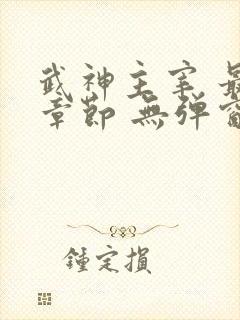 武神主宰 最
章節 無彈窗
鍾定損